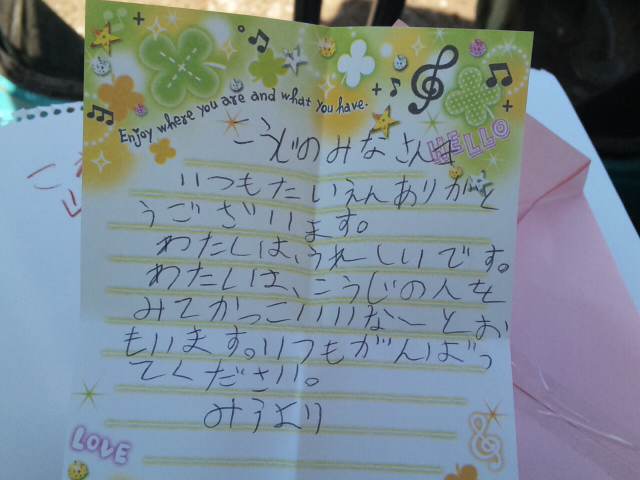 Enjoy where you are and what you have.
HELLO
こうじのみなさんえ
いつもたいえんありがと
うございます。
わたしは、うれしいです。
わたしは、こうじの人を
みてかっこいいなーとお
もいます。いつもがんばっ
てください。
みうより
LOVE